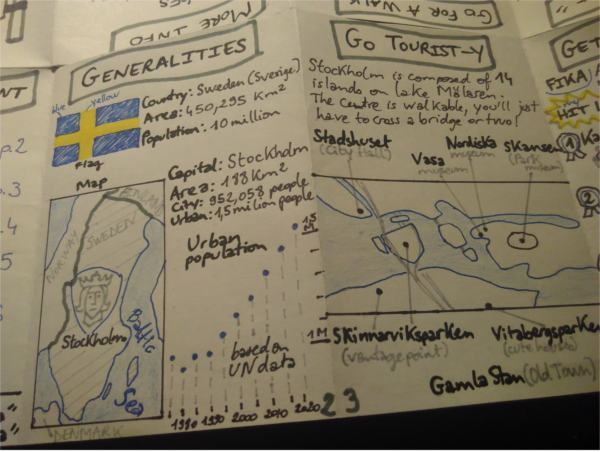 MORE INFO
GO FOR A WALK
GENERALITIES
blue
yellow
Flag
Country: Sweden (Sverige)
Area: 450,295 Km²
Population: 10 million
Capital: Stockholm
Area: 188 Km²
City: 952,058 people
Urban: 1,5 milion people
Map
NORWAY
SWEDEN
Stockholm
Baltic
Sea
DENMARK
Urban
population
1,5
M
1M
based on
UN data
1980 1990 2000 2010 2020
2 3
GO TOURIST-Y
Stockholm is composed of 14
islands on lake Mälaren.
The centre is walkable, you'll just
have to cross a bridge or two!
Stadshuset
(City Hall)
Vasa
museum
Nordiska
museum
Skansen
(Park
museum)
Skinnarviksparken
(vantage point)
Vitabergsparken
Gamla Stan (Old Town)
GET
FIKA
HIT
1
2
p.2
p.3
.4
5
NT